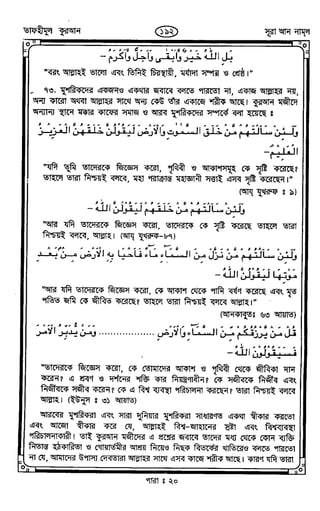 তাফহীমুল কুরআন
১৯২
সূরা আন নামল
بَلِ اللّٰهُ خَيْرٌ وَّاَبْقٰى وَاَجَلُّ وَاَكْرَمُ -
"বরং আল্লাহই ভালো এবং তিনিই চিরস্থায়ী, মর্যাদা সম্পন্ন ও শ্রেষ্ঠ।"
৭৩. মুশরিকদের একজনও একথার জবাবে বলতে পারতো না, একাজ আল্লাহর নয়,
অন্য কারো অথবা আল্লাহর সাথে অন্য কেউ তাঁর একাজে শরীক আছে। কুরআন মজীদে
অন্যান্য স্থানে মক্কার কাফের সমাজ ও আরব মুশরিকদের সম্পর্কে বলা হয়েছে :
وَلَئِنْ سَاَلْتَهُمْ مَّنْ خَلَقَ السَّمٰوٰتِ وَالْاَرْضَ لَيَقُوْلُنَّ خَلَقَهُنَّ الْعَزِيْزُ
الْعَلِيْمُ -
"যদি তুমি তাদেরকে জিজ্ঞেস করো, পৃথিবী ও আকাশসমূহ কে সৃষ্টি করেছে?
তাহলে তারা নিশ্চয়ই বলবে, মহা পরাক্রান্ত মহাজ্ঞানী সত্তাই এসব সৃষ্টি করেছেন।"
(আয্ যুখরুফ : ৯)
وَلَئِنْ سَاَلْتَهُمْ مَّنْ خَلَقَهُمْ لَيَقُوْلُنَّ اللّٰهُ -
"আর যদি তাদেরকে জিজ্ঞেস করো, তাদেরকে কে সৃষ্টি করেছে তাহলে তারা
নিশ্চয়ই বলবে, আল্লাহ। (আয্ যুখরুফ-৮৭)
وَلَئِنْ سَاَلْتَهُمْ مَّنْ نَّزَّلَ مِنَ السَّمَآءِ مَآءً فَاَحْيَا بِهِ الْاَرْضَ مِنْۢ بَعْدِ
مَوْتِهَا لَيَقُوْلُنَّ اللّٰهُ -
"আর যদি তাদেরকে জিজ্ঞেস করো, কে আকাশ থেকে পানি বর্ষণ করেছে এবং মৃত
পতিত জমি কে জীবিত করেছে? তাহলে তারা নিশ্চয়ই বলবে আল্লাহ।"
(আনকাবুত : ৬৩ আয়াত)
قُلْ مَنْ يَّرْزُقُكُمْ مِّنَ السَّمَآءِ وَالْاَرْضِ .................. وَمَنْ يُّدَبِّرُ الْاَمْرَ
فَسَيَقُوْلُوْنَ اللّٰهُ -
"তাদেরকে জিজ্ঞেস করো, কে তোমাদের আকাশ ও পৃথিবী থেকে জীবিকা দান
করেন? এ শ্রবণ ও দর্শনের শক্তি কার নিয়ন্ত্রণাধীন? কে সজীবকে নির্জীব এবং
নির্জীবকে সজীব করেন? কে এ বিশ্ব ব্যবস্থা পরিচালনা করছেন? তারা নিশ্চয়ই বলবে
আল্লাহ। (ইউনুস : ৩১ আয়াত)
আরবের মুশরিকরা এবং সারা দুনিয়ার মুশরিকরা সাধারণত একথা স্বীকার করতো
এবং আজো স্বীকার করে যে, আল্লাহই বিশ্ব-জাহানের স্রষ্টা এবং বিশ্বব্যবস্থা
পরিচালনাকারী। তাই কুরআন মজীদের এ প্রশ্নের জবাবে তাদের মধ্য থেকে কোন ব্যক্তি
নিতান্ত হঠকারিতা ও গোয়ার্তুমীর আশ্রয় নিয়েও নিছক বিতর্কের খাতিরেও বলতে পারতো
না যে, আমাদের উপাস্য দেবতারা আল্লাহর সাথে এসব কাজে শরীক আছে। কারণ যদি তারা
পারা : ২০